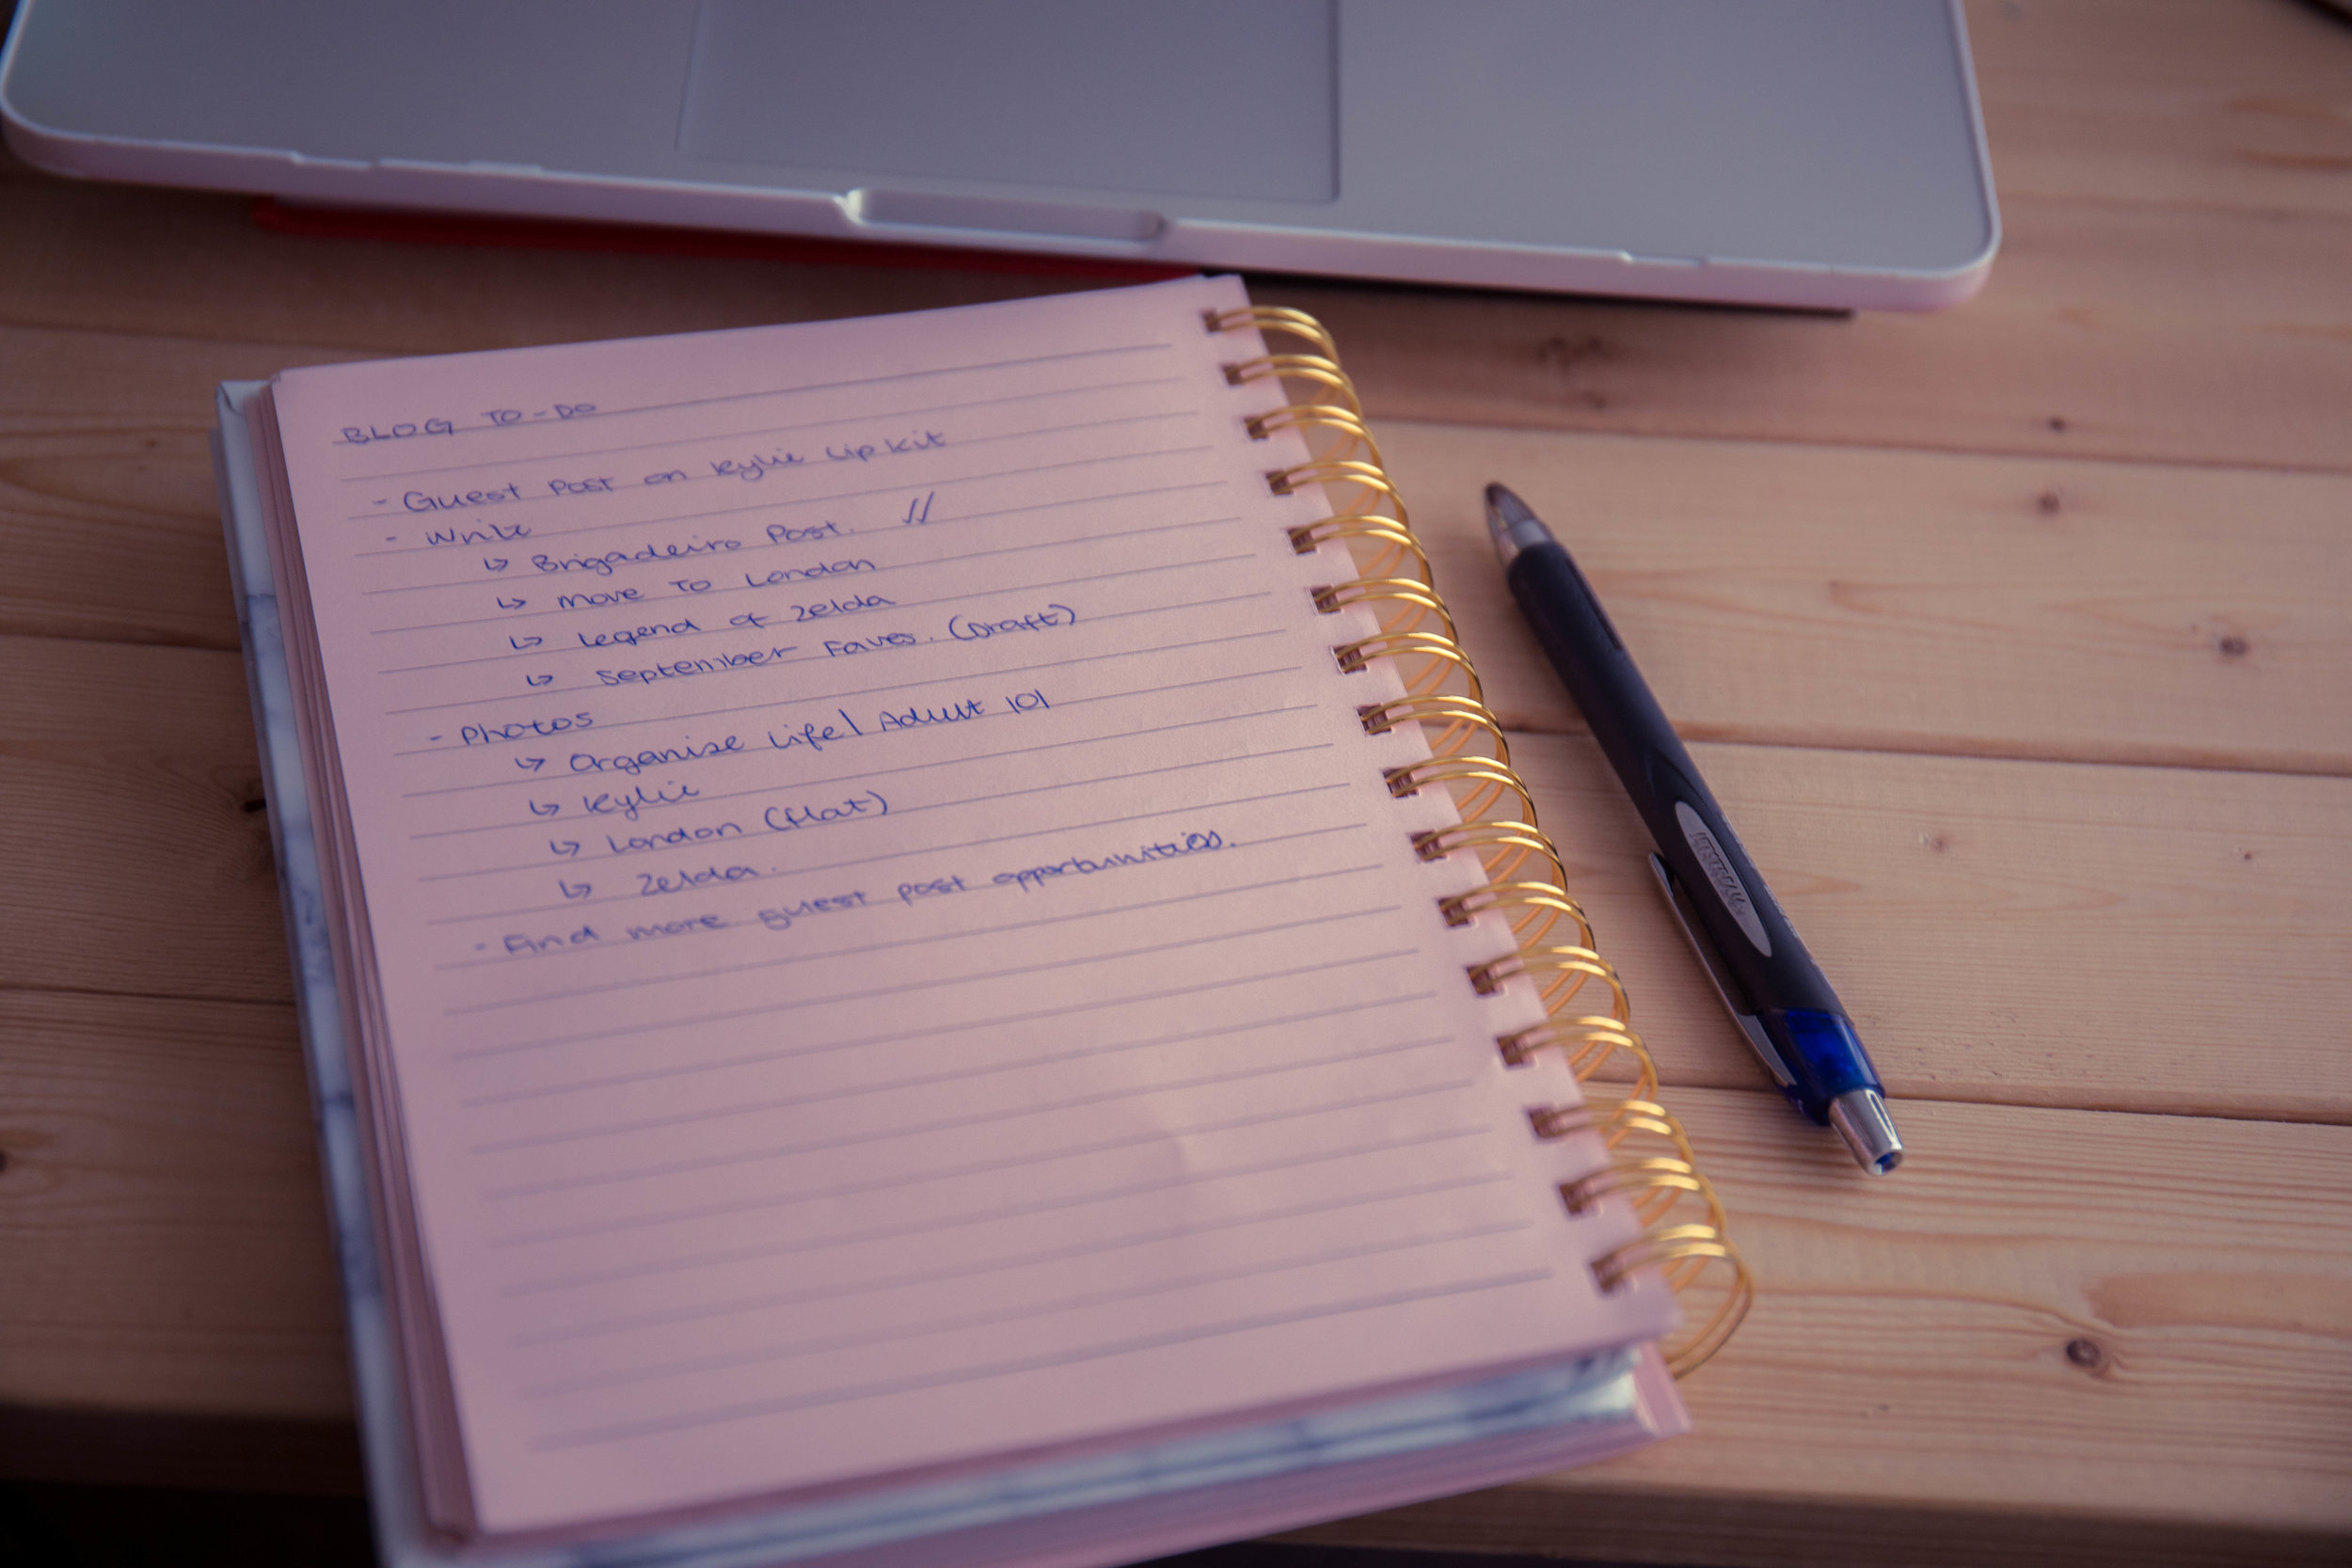 BLOG TO-DO
- Guest Post on Kylie Lip Kit
- Write
↳ Brigadeiro Post. //
↳ Move to London
↳ Legend of Zelda
↳ September Faves. (Draft)
- Photos
↳ Organise Life | Adult 101
↳ Kylie
↳ London (flat)
↳ Zelda.
- Find more guest post opportunities.
JETSTREAM